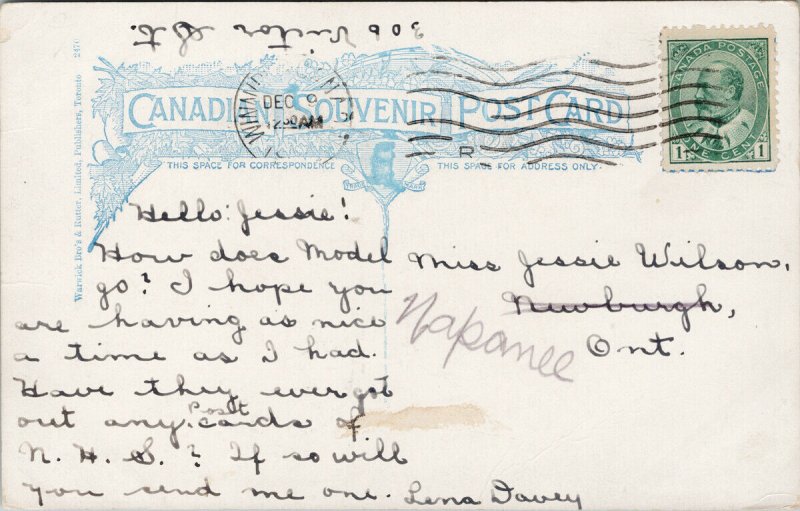 306 Victor St.
CANADIAN SOUVENIR POST CARD
THIS SPACE FOR CORRESPONDENCE
THIS SPACE FOR ADDRESS ONLY.
DEC 9
12 30 AM
R
CANADA POSTAGE
1 ONE CENT 1
Warwick Bro's & Rutter, Limited, Publishers, Toronto 2470
Hello Jessie!
How does Model
go? I hope you
are having as nice
a time as I had.
Have they ever got
out any Post cards of
N. H. S.? If so will
you send me one. Lena Davey
Miss Jessie Wilson,
Newburgh,
Napanee
Ont.